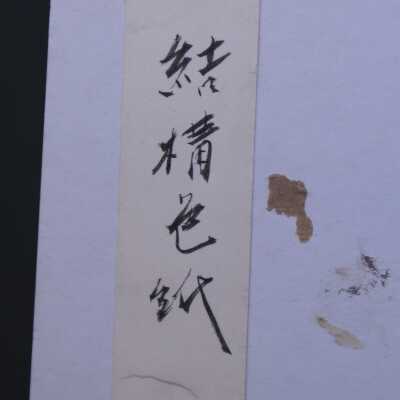 結構色紙